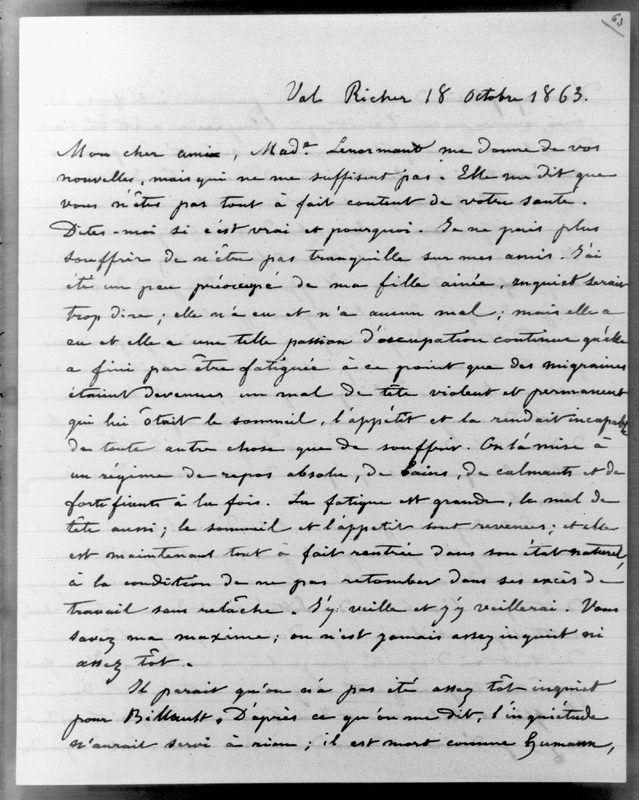 63
Val Richer 18 Octobre 1863.
Mon cher ami, Made Lenormant me donne de vos
nouvelles, mais qui ne me suffisent pas. Elle me dit que
vous n'êtes pas tout à fait content de votre santé.
Dites-moi si c'est vrai et pourquoi. Je ne puis plus
souffrir de n'être pas tranquille sur mes amis. J'ai
été un peu préoccupé de ma fille ainée, inquiet serait
trop dire ; elle n'a eu et n'a aucun mal ; mais elle a
eu et elle a une telle passion d'occupation continue qu'elle
a fini par être fatiguée à ce point que des migraines
étaient devenues un mal de tête violent et permanent
qui lui ôtait le sommeil, l'appétit et la rendait incapable
de toute autre chose que de souffrir. On l'a mise à
un régime de repos absolu, de bains, de calmants et de
fortifiants à la fois. La fatigue est grande, le mal de
tête aussi ; le sommeil et l'appetit sont revenus ; et elle
est maintenant tout à fait rentrée dans son état naturel,
à la condition de ne pas retomber dans ses excès de
travail sans relâche. J'y veille et j'y veillerai. Vous
savez ma maxime ; on n'est jamais assez inquiet ni
assez tôt.
Il parait qu'on n'a pas été assez tôt inquiet
pour Billault. D'après ce qu'on me dit, l'inquiétude
n'aurait servi à rien ; il est mort comme Humann,